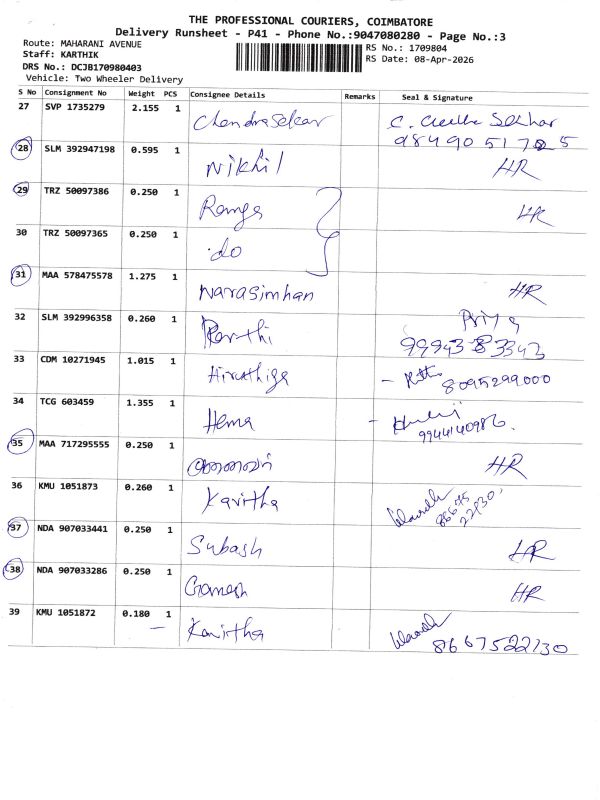 THE PROFESSIONAL COURIERS, COIMBATORE
Delivery Runsheet - P41 - Phone No.:9047080280 - Page No.:3
Route: MAHARANI AVENUE
RS No.: 1709804
Staff: KARTHIK
RS Date: 08-Apr-2026
DRS No.: DCJB170980403
Vehicle: Two Wheeler Delivery
S No Consignment No Weight PCS Consignee Details Remarks Seal & Signature
27 SVP 1735279 2.155 1 Chandrasekar
28 SLM 392947198 0.595 1 Nikhil HR
29 TRZ 50097386 0.250 1 HR
30 TRZ 50097365 0.250 1 do
31 MAA 578475578 1.275 1 Narasimhan HR
32 SLM 392996358 0.260 1 Priya
33 CDM 10271945 1.015 1 8095299000
34 TCG 603459 1.355 1 Hema
35 MAA 717295555 0.250 1 HR
36 KMU 1051873 0.260 1 Kavitha
37 NDA 907033441 0.250 1 Subash HR
38 NDA 907033286 0.250 1 Ganesh HR
39 KMU 1051872 0.180 1 Kavitha
8667522130